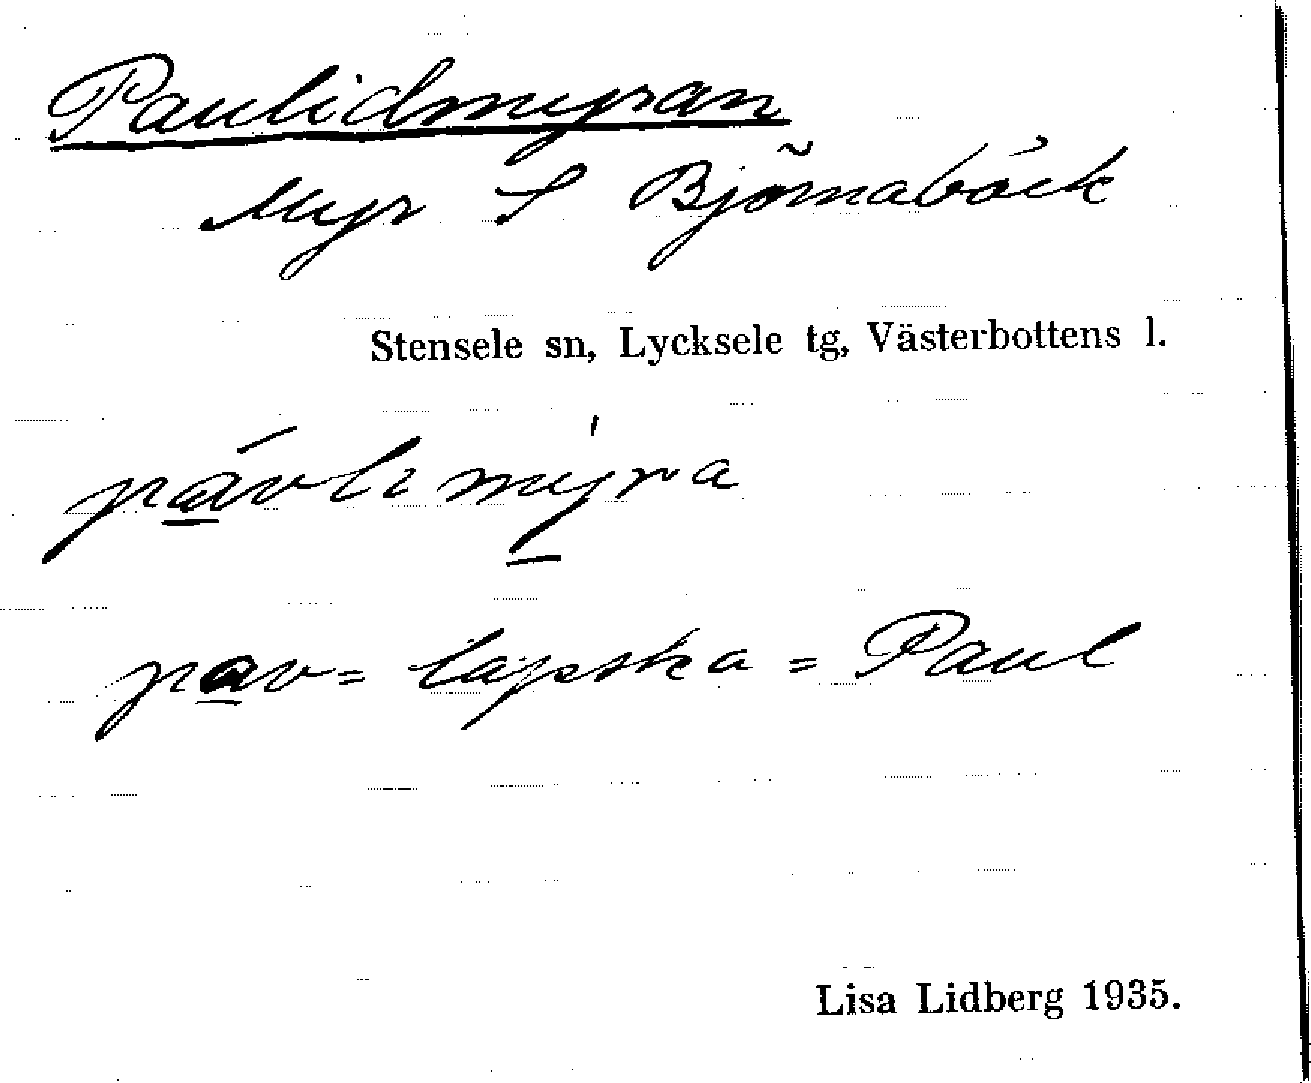 Paulidmyran
Myr S Björnabäck
Stensele sn, Lycksele tg, Västerbottens l.
pávli mýra
pav = lapska = Paul
Lisa Lidberg 1935.